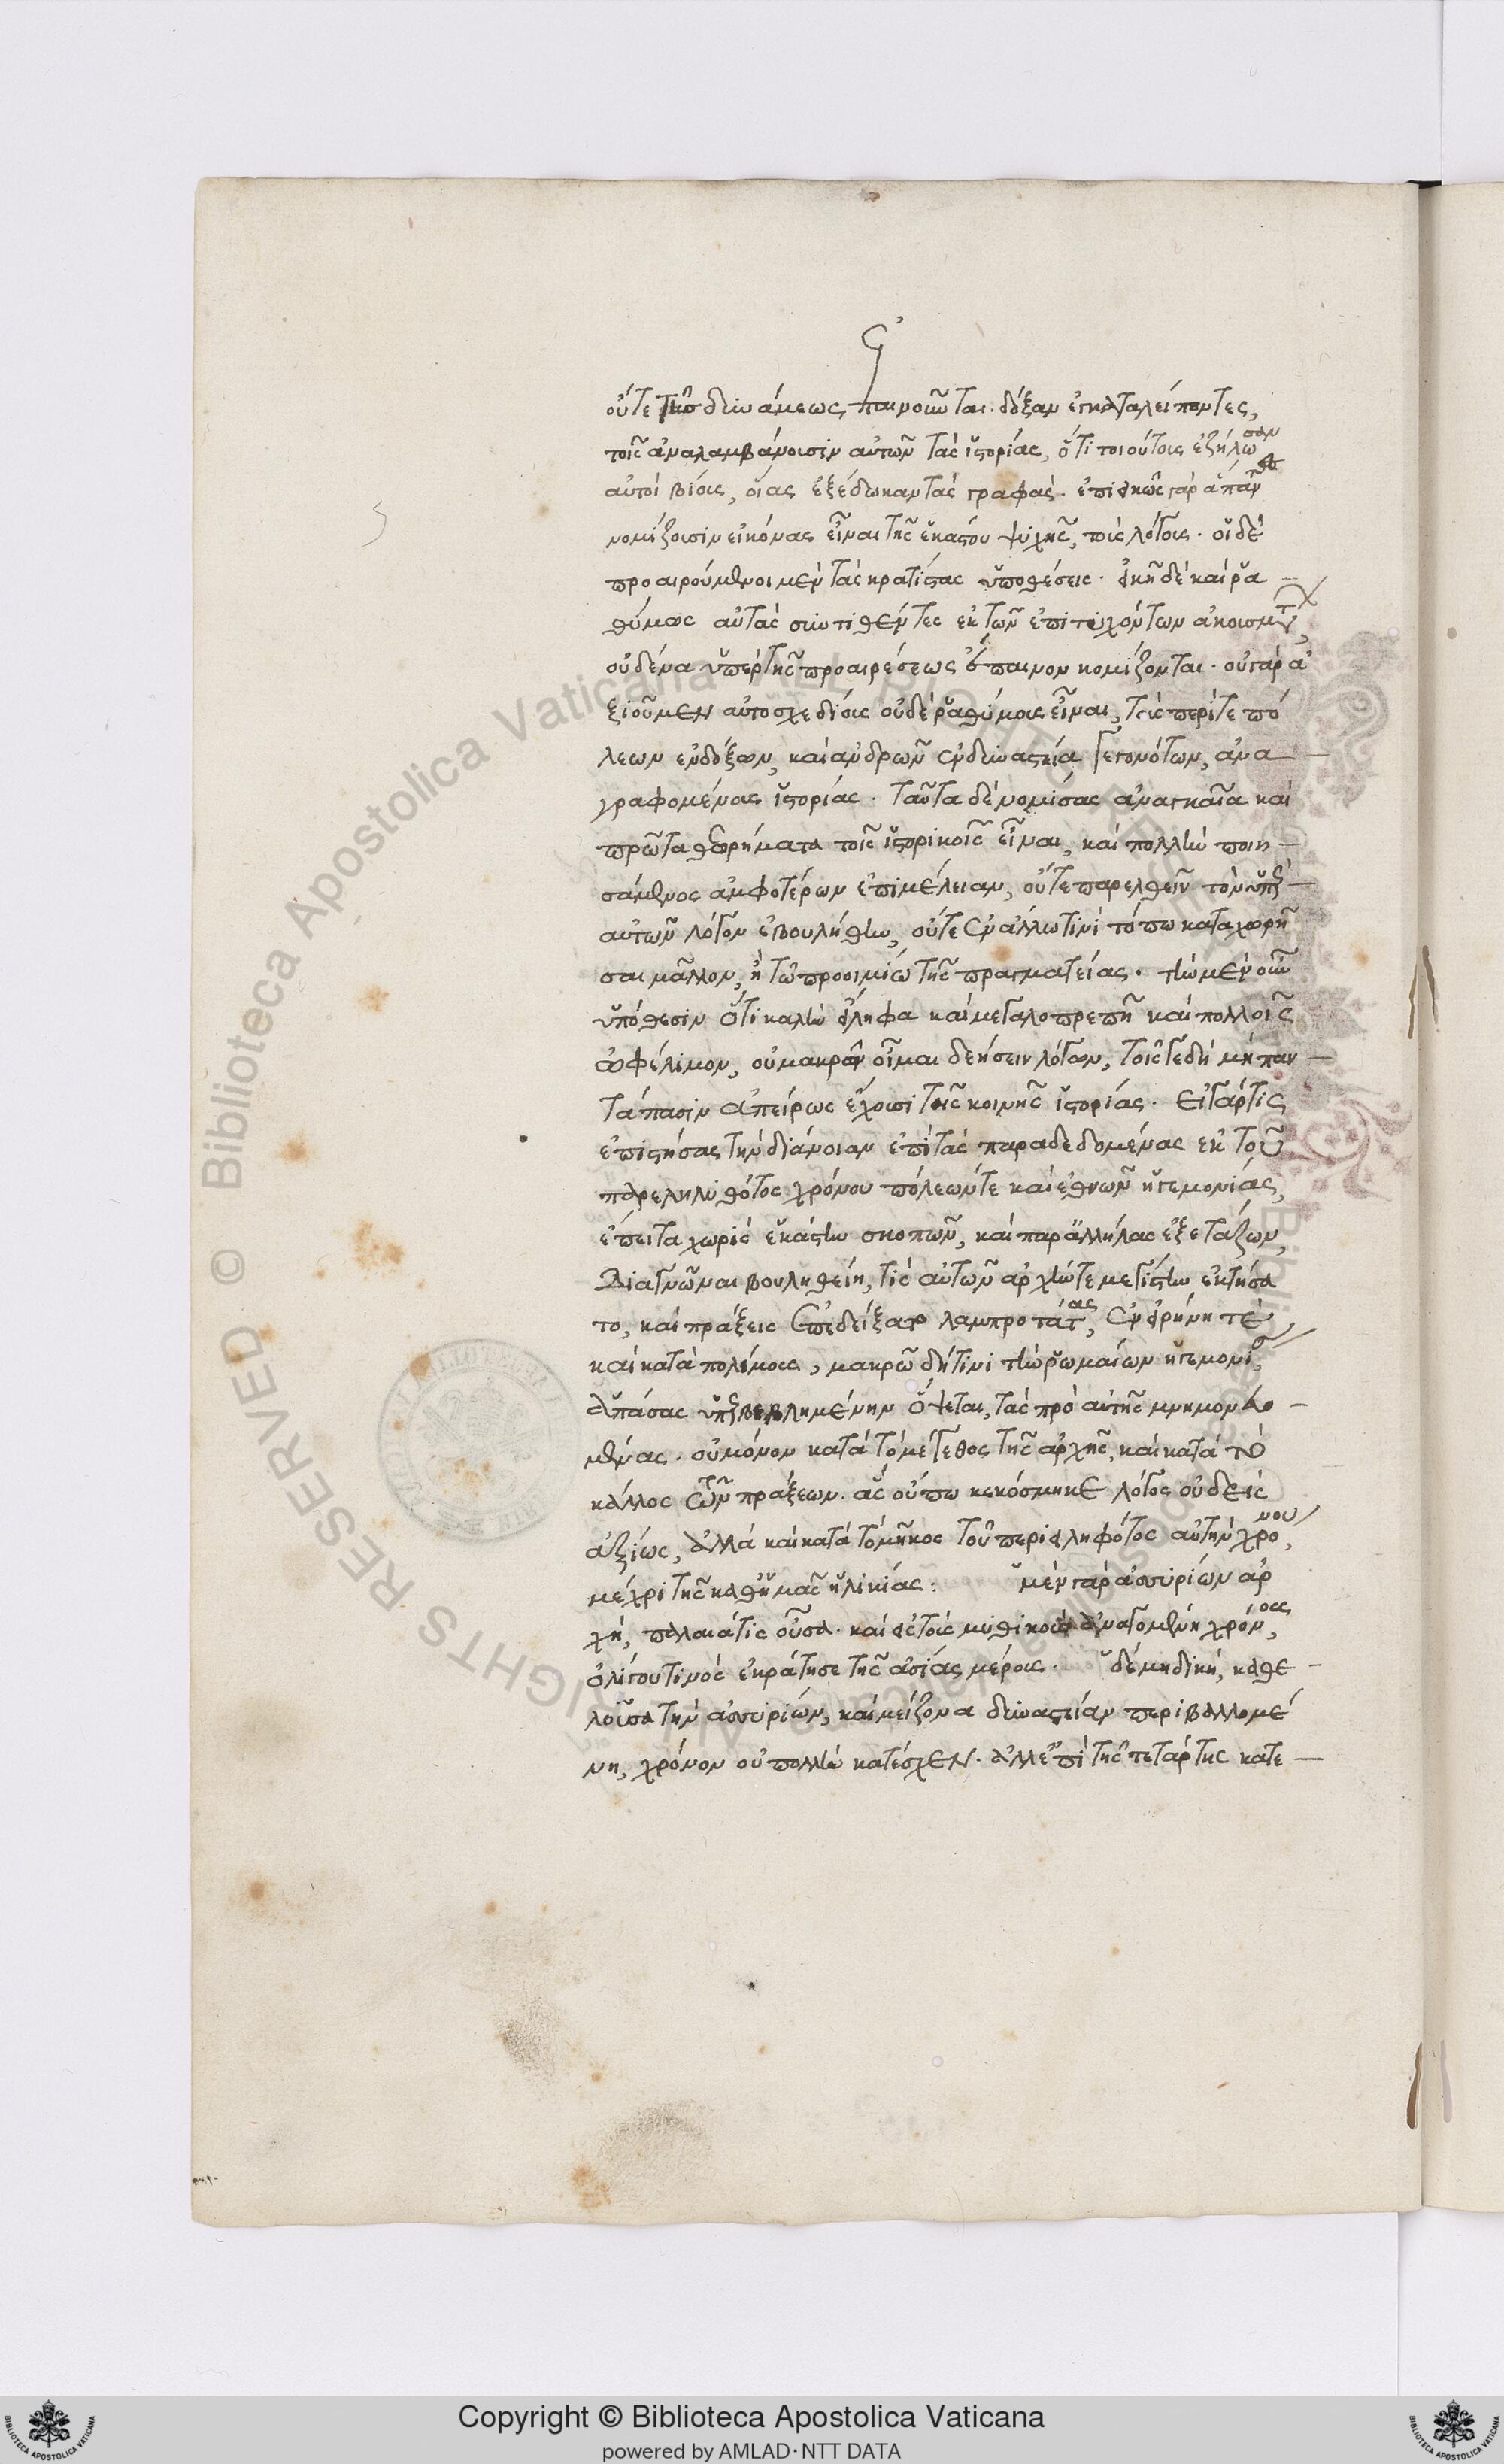 ςʹ
οὔτε τῆς δυνάμεως ἐπαινοῦνται· δόξαν ἐγκαταλείποντες,
τοῖς ἀναλαμβάνουσιν αὐτῶν τὰς ἱστορίας, ὅτι τοιούτοις ἐζήλωσαν
αὐτοὶ βίοις, οἵας ἐξέδωκαν τὰς γραφάς· ἐπιεικῶς γὰρ ἅπαντες
νομίζουσιν εἰκόνας εἶναι τῆς ἑκάστου ψυχῆς, τοὺς λόγους· οἱ δὲ
προαιρούμενοι μὲν τὰς κρατίστας ὑποθέσεις· εἰκῆ δὲ καὶ ῥα
θύμως αὐτὰς συντιθέντες ἐκ τῶν ἐπιτυχόντων ἀκουσμάτων,
οὐδένα ὑπὲρ τῆς προαιρέσεως ἔπαινον κομίζονται· οὐ γὰρ ἀ
ξιοῦμεν αὐτοσχεδίους οὐδὲ ῥαθύμους εἶναι, τὰς περί τε πό
λεων ἐνδόξων, καὶ ἀνδρῶν ἐν δυναστεία γεγονότων, ἀνα
γραφομένας ἱστορίας· ταῦτα δὲ νομίσας ἀναγκαῖα καὶ
πρῶτα θεωρήματα τοῖς ἱστορικοῖς εἶναι, καὶ πολλὴν ποιη
σάμενος ἀμφοτέρων ἐπιμέλειαν, οὔτε παρελθεῖν τὸν ὑπὲρ
αὐτῶν λόγον ἐβουλήθην, οὔτε ἐν ἄλλω τινὶ τόπω καταχωρῆ
σαι μᾶλλον, ἢ τῶ προοιμίω τῆς πραγματείας· τὴν μὲν οὖν
ὑπόθεσιν ὅτι καλὴν εἴληφα καὶ μεγαλοπρεπῆ καὶ πολλοῖς
ὠφέλιμον, οὐ μακρῶν οἶμαι δεήσειν λόγων, τοῖς γε δὴ μὴ παν
τάπασιν ἀπείρως ἔχουσι τῆς κοινῆς ἱστορίας· εἰ γάρ τις
ἐπιστήσας τὴν διάνοιαν ἐπὶ τὰς παραδεδομένας ἐκ τοῦ
παρεληλυθότος χρόνου πόλεών τε καὶ ἐθνῶν ἡγεμονίας,
ἔπειτα χωρὶς ἑκάστην σκοπῶν, καὶ παρ' ἀλλήλας ἐξετάζων,
διαγνῶναι βουληθείη, τίς αὐτῶν ἀρχήν τε μεγίστην ἐκτήσα
το, καὶ πράξεις ἐπεδείξατο λαμπροτάτας, ἐν εἰρήνη τέ
καὶ κατὰ πολέμους, μακρῶ δή τινι τὴν ῥωμαίων ἡγεμονίαν
ἁπάσας ὑπερβεβλημένην ὄψεται, τὰς πρὸ αὐτῆς μνημονευο
μένας· οὐ μόνον κατὰ τὸ μέγεθος τῆς ἀρχῆς, καὶ κατὰ τὸ
κάλλος τῶν πράξεων· ἃς οὔπω κεκόσμηκε λόγος οὐδεὶς
ἀξίως, ἀλλὰ καὶ κατὰ τὸ μῆκος τοῦ περιειληφότος αὐτὴν χρόνου,
μέχρι τῆς καθ' ἡμᾶς ἡλικίας: ἡ μὲν γὰρ ἀσσυρίων ἀρ
χή, παλαιά τις οὖσα· καὶ εἰς τοὺς μυθικοὺς ἀναγομένη χρόνους,
ὀλίγου τινὸς ἐκράτησε τῆς ἀσίας μέρους· ἡ δὲ μηδική, καθε
λοῦσα τὴν ἀσσυρίων, καὶ μείζονα δυναστείαν περιβαλλομέ
νη, χρόνον οὐ πολλὴν κατέσχεν· ἀλλ' ἐπὶ τῆς τετάρτης κατε
Copyright © Biblioteca Apostolica Vaticana
powered by AMLAD·NTT DATA